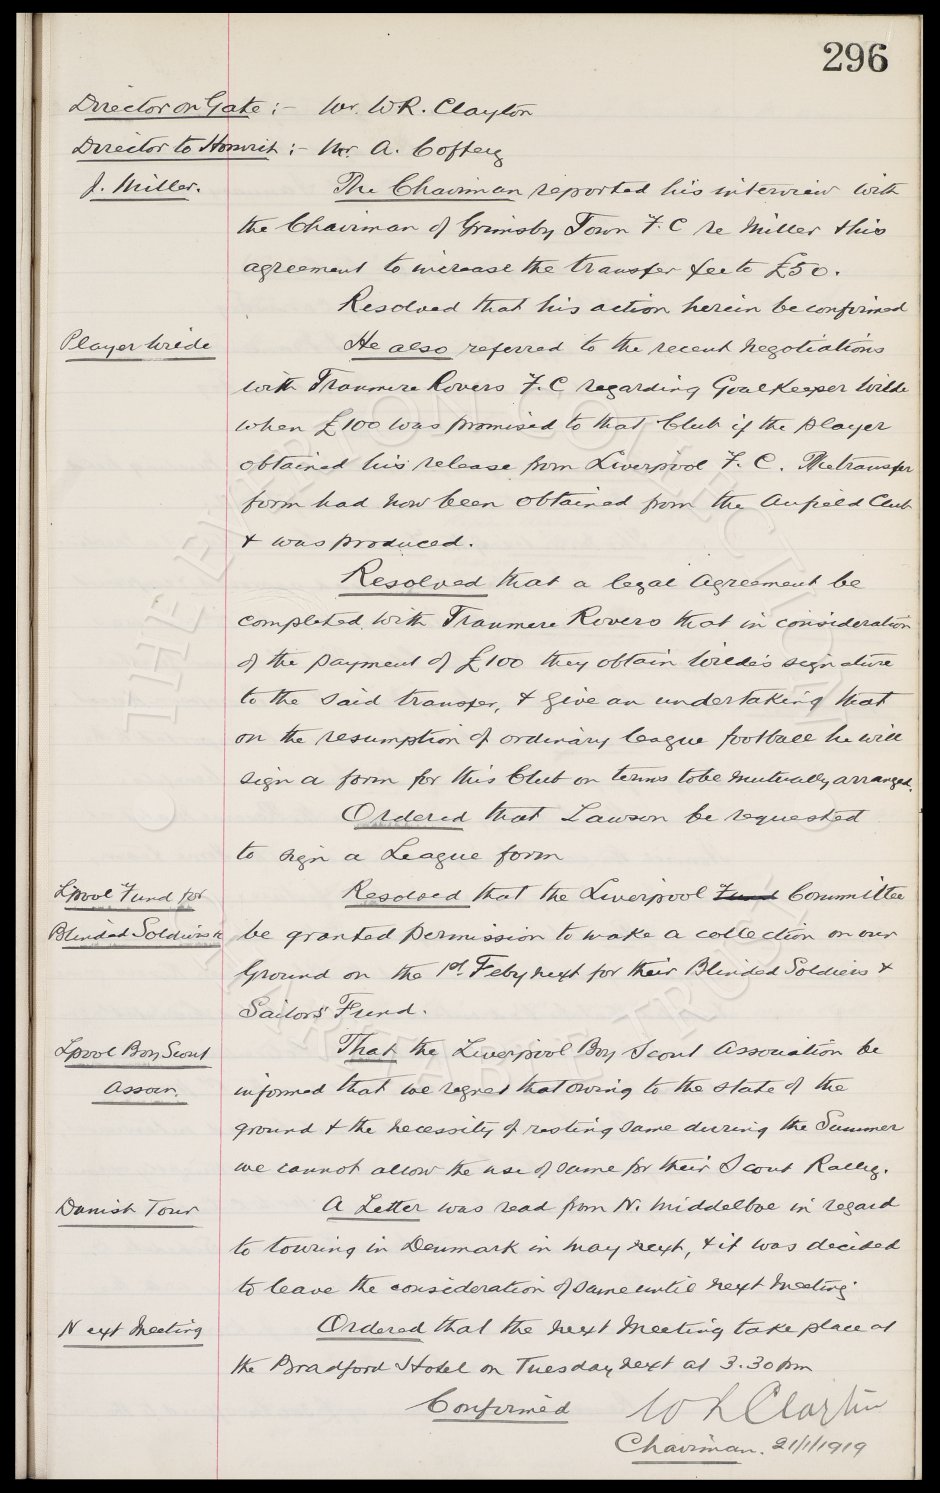 296
Director on Gate :- Mr. W R. Clayton
Director to Horwich :- Mr A. Coffey
J. Miller. The Chairman reported his interview with
the Chairman of Grimsby Town F. C re Miller & his
agreement to increase the transfer fee to £50.
Resolved that his action herein be confirmed
Player Wilde He also referred to the recent negotiations
with Tranmere Rovers F. C regarding Goalkeeper Wilde
when £100 was promised to that Club if the player
obtained his release from Liverpool F. C. The transfer
form had now been obtained from the Anfield Club
& was produced.
Resolved that a legal Agreement be
completed with Tranmere Rovers that in consideration
of the payment of £100 they obtain Wilde's signature
to the said transfer, & give an undertaking that
on the resumption of ordinary league football he will
sign a form for this Club on terms to be mutually arranged.
Ordered that Lawson be requested
to sign a League form
Lpool Fund for Resolved that the Liverpool Fund Committee
Blinded Soldiers &c be granted permission to make a collection on our
Ground on the 1st Feby next for their Blinded Soldiers &
Sailors' Fund.
Lpool Boy Scout That the Liverpool Boy Scout Association be
Assocn. informed that we regret that owing to the state of the
ground & the necessity of resting same during the Summer
we cannot allow the use of same for their Scout Rally.
Danish Tour A Letter was read from N. Middelboe in regard
to touring in Denmark in May next, & it was decided
to leave the consideration of same until next Meeting.
Next Meeting Ordered that the next Meeting take place at
the Bradford Hotel on Tuesday next at 3.30 pm
Confirmed W R Clayton
Chairman. 21/1/1919
© THE EVERTON COLLECTION
CHARITABLE TRUST